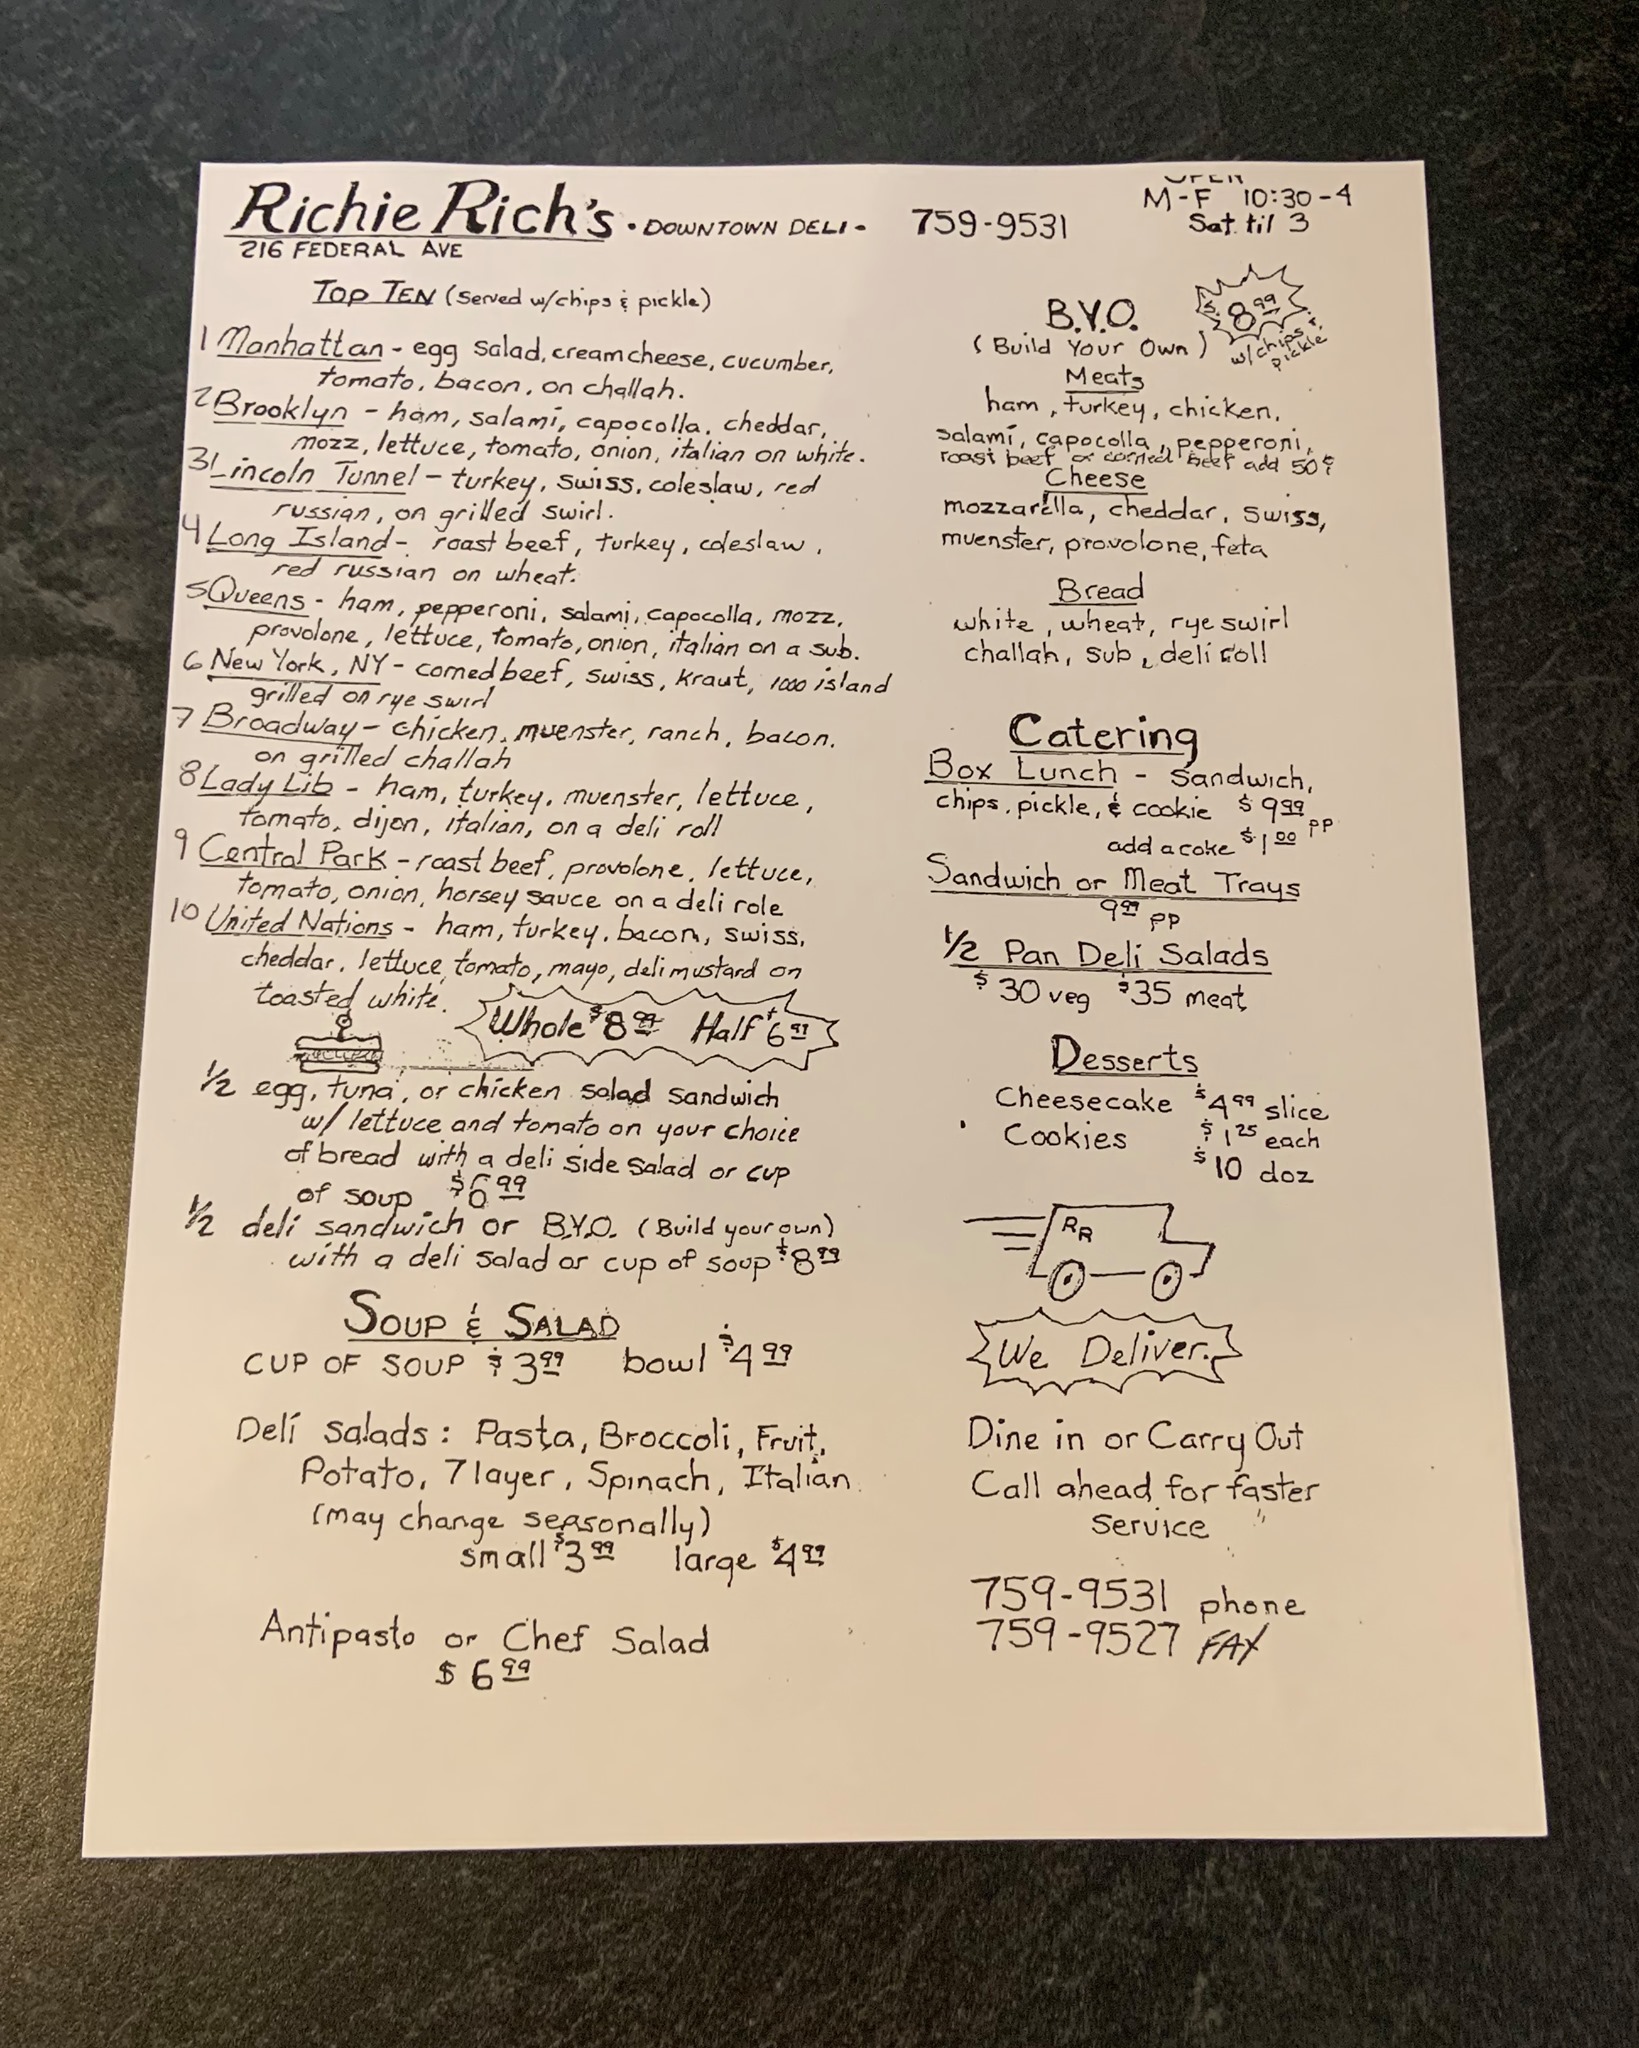 Richie Rich's • DOWNTOWN DELI • 759-9531
216 FEDERAL AVE
OPEN
M-F 10:30-4
Sat. til 3
TOP TEN (Served w/chips & pickle)
1 Manhattan - egg salad, creamcheese, cucumber,
tomato, bacon, on challah.
2 Brooklyn - ham, salami, capocolla, cheddar,
mozz, lettuce, tomato, onion, italian on white.
3 Lincoln Tunnel - turkey, swiss, coleslaw, red
russian, on grilled swirl.
4 Long Island - roast beef, turkey, coleslaw,
red russian on wheat.
5 Queens - ham, pepperoni, salami, capocolla, mozz,
provolone, lettuce, tomato, onion, italian on a sub.
6 New York, NY - corned beef, swiss, kraut, 1000 island
grilled on rye swirl
7 Broadway - chicken, muenster, ranch, bacon.
on grilled challah
8 Lady Lib - ham, turkey, muenster, lettuce,
tomato, dijon, italian, on a deli roll
9 Central Park - roast beef, provolone, lettuce,
tomato, onion, horsey sauce on a deli role
10 United Nations - ham, turkey, bacon, swiss,
cheddar, lettuce, tomato, mayo, deli mustard on
toasted white.
Whole $8.99 Half $6.99
1/2 egg, tuna, or chicken salad sandwich
w/ lettuce and tomato on your choice
of bread with a deli side salad or cup
of soup $6.99
1/2 deli sandwich or B.Y.O. (Build your own)
with a deli salad or cup of soup $8.99
SOUP & SALAD
CUP OF SOUP $3.99 bowl $4.99
Deli Salads: Pasta, Broccoli, Fruit,
Potato, 7 layer, Spinach, Italian
(may change seasonally)
small $3.99 large $4.99
Antipasto or Chef Salad
$6.99
B.Y.O.
$8.99
w/chips & pickle
(Build Your Own)
Meats
ham, turkey, chicken,
salami, capocolla, pepperoni,
roast beef or corned beef add 50¢
Cheese
mozzarella, cheddar, swiss,
muenster, provolone, feta
Bread
white, wheat, rye swirl
challah, sub, deli roll
Catering
Box Lunch - sandwich,
chips, pickle, & cookie $9.99 pp
add a coke $1.00
Sandwich or Meat Trays
9.99 pp
1/2 Pan Deli Salads
$30 veg $35 meat
Desserts
Cheesecake $4.99 slice
Cookies $1.25 each
$10 doz
RR
We Deliver.
Dine in or Carry Out
Call ahead for faster
service
759-9531 phone
759-9527 FAX